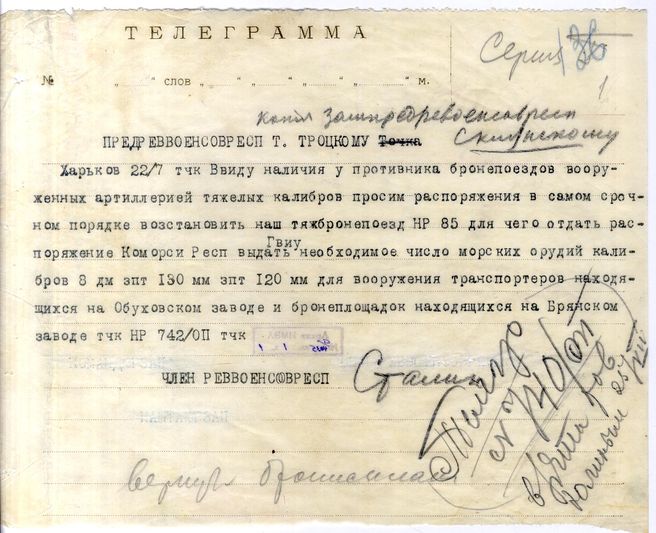 ТЕЛЕГРАММА
Серия 
1
№ „ “ слов „ “ „ “ „ “ м.
копия Зампредреввоенсовресп
Склянскому
ПРЕДРЕВВОЕНСОВРЕСП Т. ТРОЦКОМУ Точка
Харьков 22/7 тчк Ввиду наличия у противника бронепоездов воору-
женных артиллерией тяжелых калибров просим распоряжения в самом сроч-
ном порядке возстановить наш тяжбронепоезд НР 85 для чего отдать рас-
Гвиу
поряжение Коморси Респ выдать необходимое число морских орудий кали-
бров 8 дм зпт 130 мм зпт 120 мм для вооружения транспортеров находя-
щихся на Обуховском заводе и бронеплощадок находящихся на Брянском
заводе тчк НР 742/ОП тчк
ЧЛЕН РЕВВОЕНСОВРЕСП
Сталин